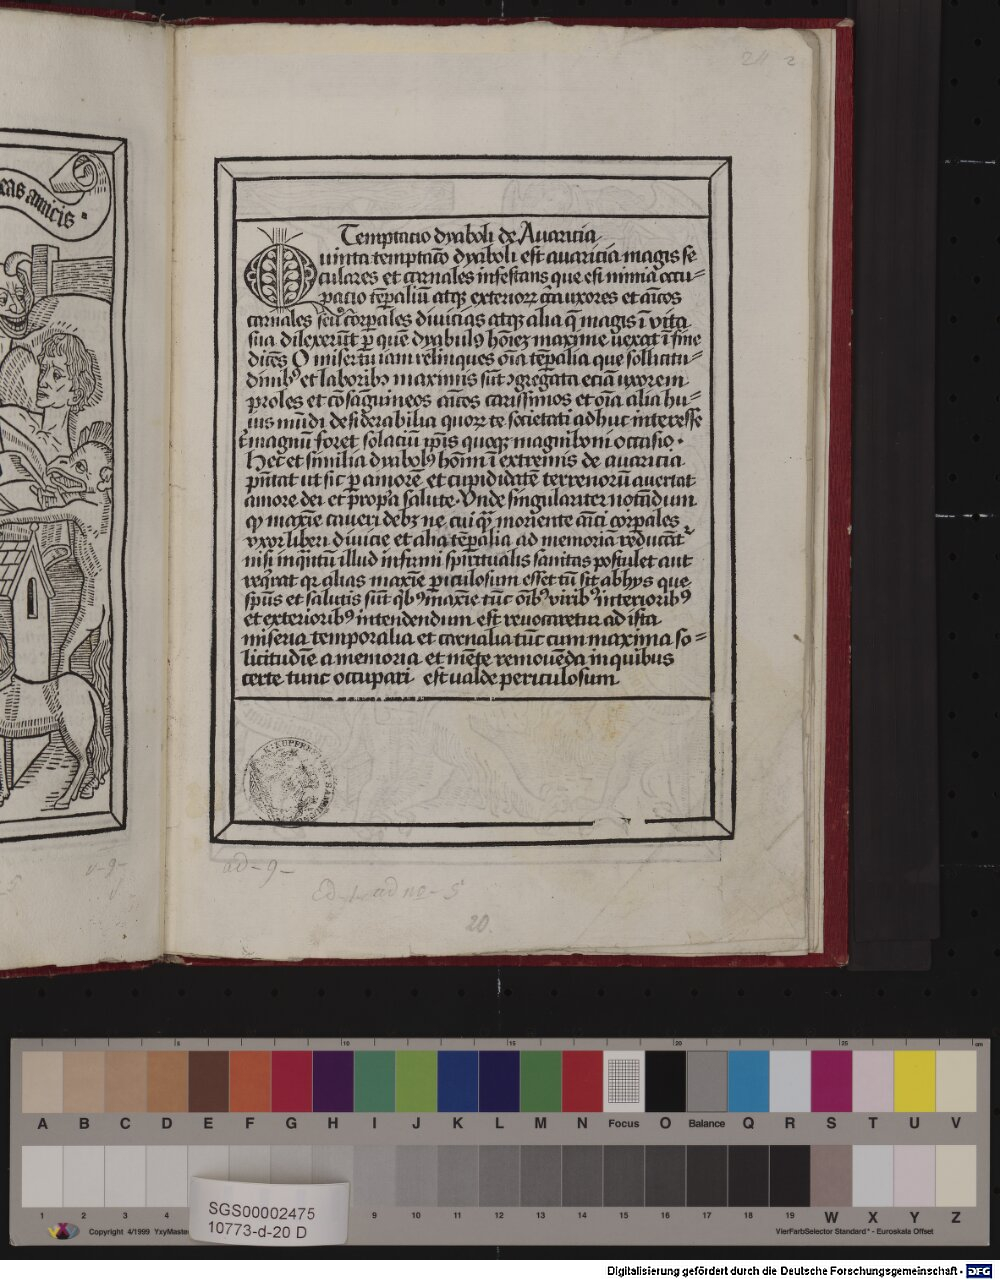 cas amicis
Temptacio dyaboli de Avaricia
Quinta temptaco dyaboli est avaricia magis se
culares et carnales infestans que est nimia occu⸗
pacio tꝑaliū atqꝫ exteriorꝝ circa uxores et aīcos
carnales seu corꝑales divicias atqꝫ alia q̄ magis ī vita
sua dilexerūt ꝑ quē dyabulꝰ hoīez maxime vexat ī fine
dicēs O miser tu iam relinques oīa tꝑalia que sollicitu⸗
dinibꝰ et laboribꝫ maximis sūt ꝯgregata eciam uxorem
proles et cōsāguineos aīcos carissimos et oīa alia hu⸗
ius mūdi desiderabilia quorꝝ te societati adhuc interesse
t' magnū foret solaciū ip̄is quoqꝫ magni boni occasio
Hec et similia dyabolꝰ hōīnī ī extremis de avaricia
p̄ntat ut sic ꝑ amorē et cupididatē terrenorū avertat
amore dei et propria salute Unde singulariter notādum
qꝫ maxīe caveri debꝫ ne cui q̄ moriente aīci corꝑales
vxor liberi divicie et alia tꝑalia ad memoriā reducātr
nisi inquātū illud infirmi spiritualis sanitas postulet aut
reqͥrat qr alias maxīe ꝑiculosum esset cū sic ab hys que
sp̄us et salutis sūt qͥbꝰ maxīe tūc oībꝰ viribꝰ interioribꝰ
et exterioribꝰ intendendum est revocaretur ad ista
miseria temporalia et carnalia tūc cum maxima so⸗
licitudīe a memoria et mēte removēda in quibus
certe tunc occupari est valde periculosum
ad-9-
20.
A B C D E F G H I J K L M N Focus O Balance Q R S T U V
1 2 3 4 9 10 11 12 13 14 15 16 17 18 19 W X Y Z
Copyright 4/1999 YxyMaste
VierFarbSelector Standard* - Euroskala Offset
SGS00002475
10773-d-20 D
Digitalisierung gefördert durch die Deutsche Forschungsgemeinschaft - DFG